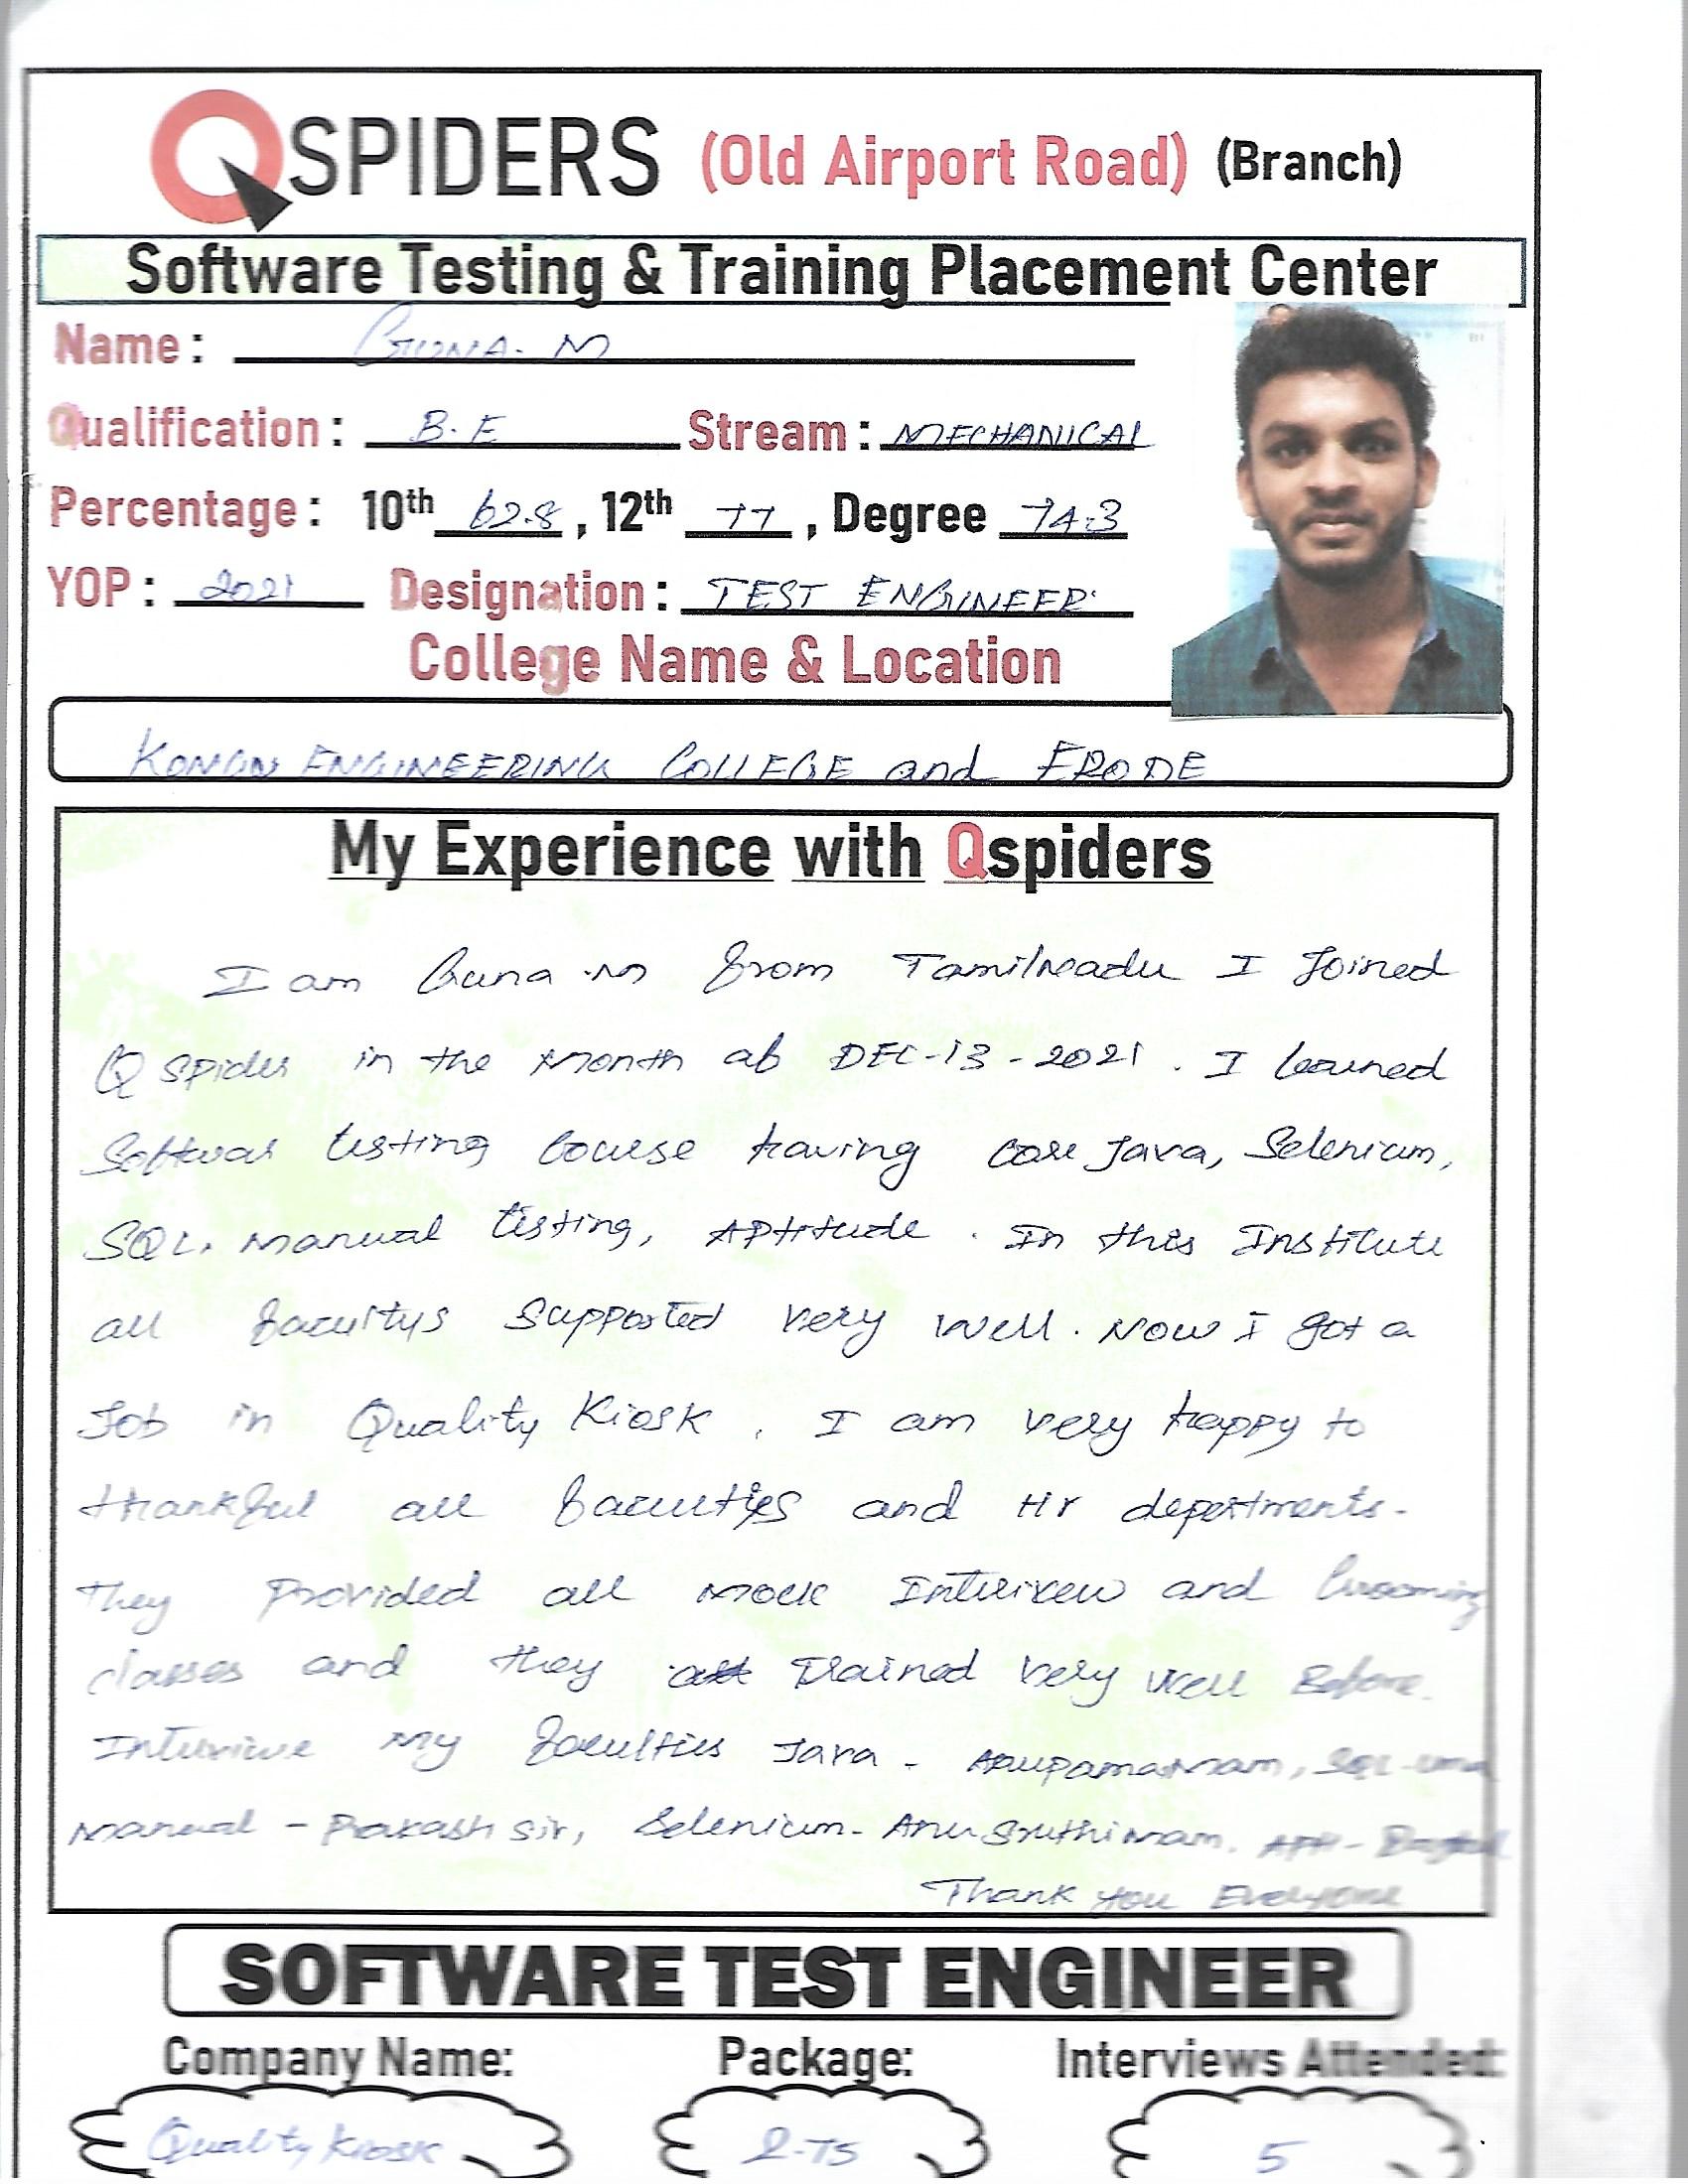 QSPIDERS (Old Airport Road) (Branch)
Software Testing & Training Placement Center
Name: GUNA. M
Qualification: B.E Stream: MECHANICAL
Percentage: 10th 62.8, 12th 77, Degree 74.3
YOP: 2021 Designation: TEST ENGINEER
College Name & Location
KONGU ENGINEERING COLLEGE and ERODE
My Experience with Qspiders
I am Guna .M from Tamilneadu I Joined
Q spider in the Month of DEC-13-2021. I learned
Softwar testing Course having Core Java, Selenium,
SQL, Manual testing, APtitude. In this Institute
all facultys Supported very well. Now I got a
Job in Quality Kiosk. I am very happy to
thankful all faculties and Hr depertments.
They Provided all Mock Interivew and Grooming
classes and they Trained very well Before.
Interviwe My faculties Java - AnupamaMam, SQL-uma
Manual - Prakash sir, Selenium- Anu SruthiMam. APti-
Thank you Everyone
SOFTWARE TEST ENGINEER
Company Name: Package: Interviews Attended:
Quality Kiosk 2.75 5